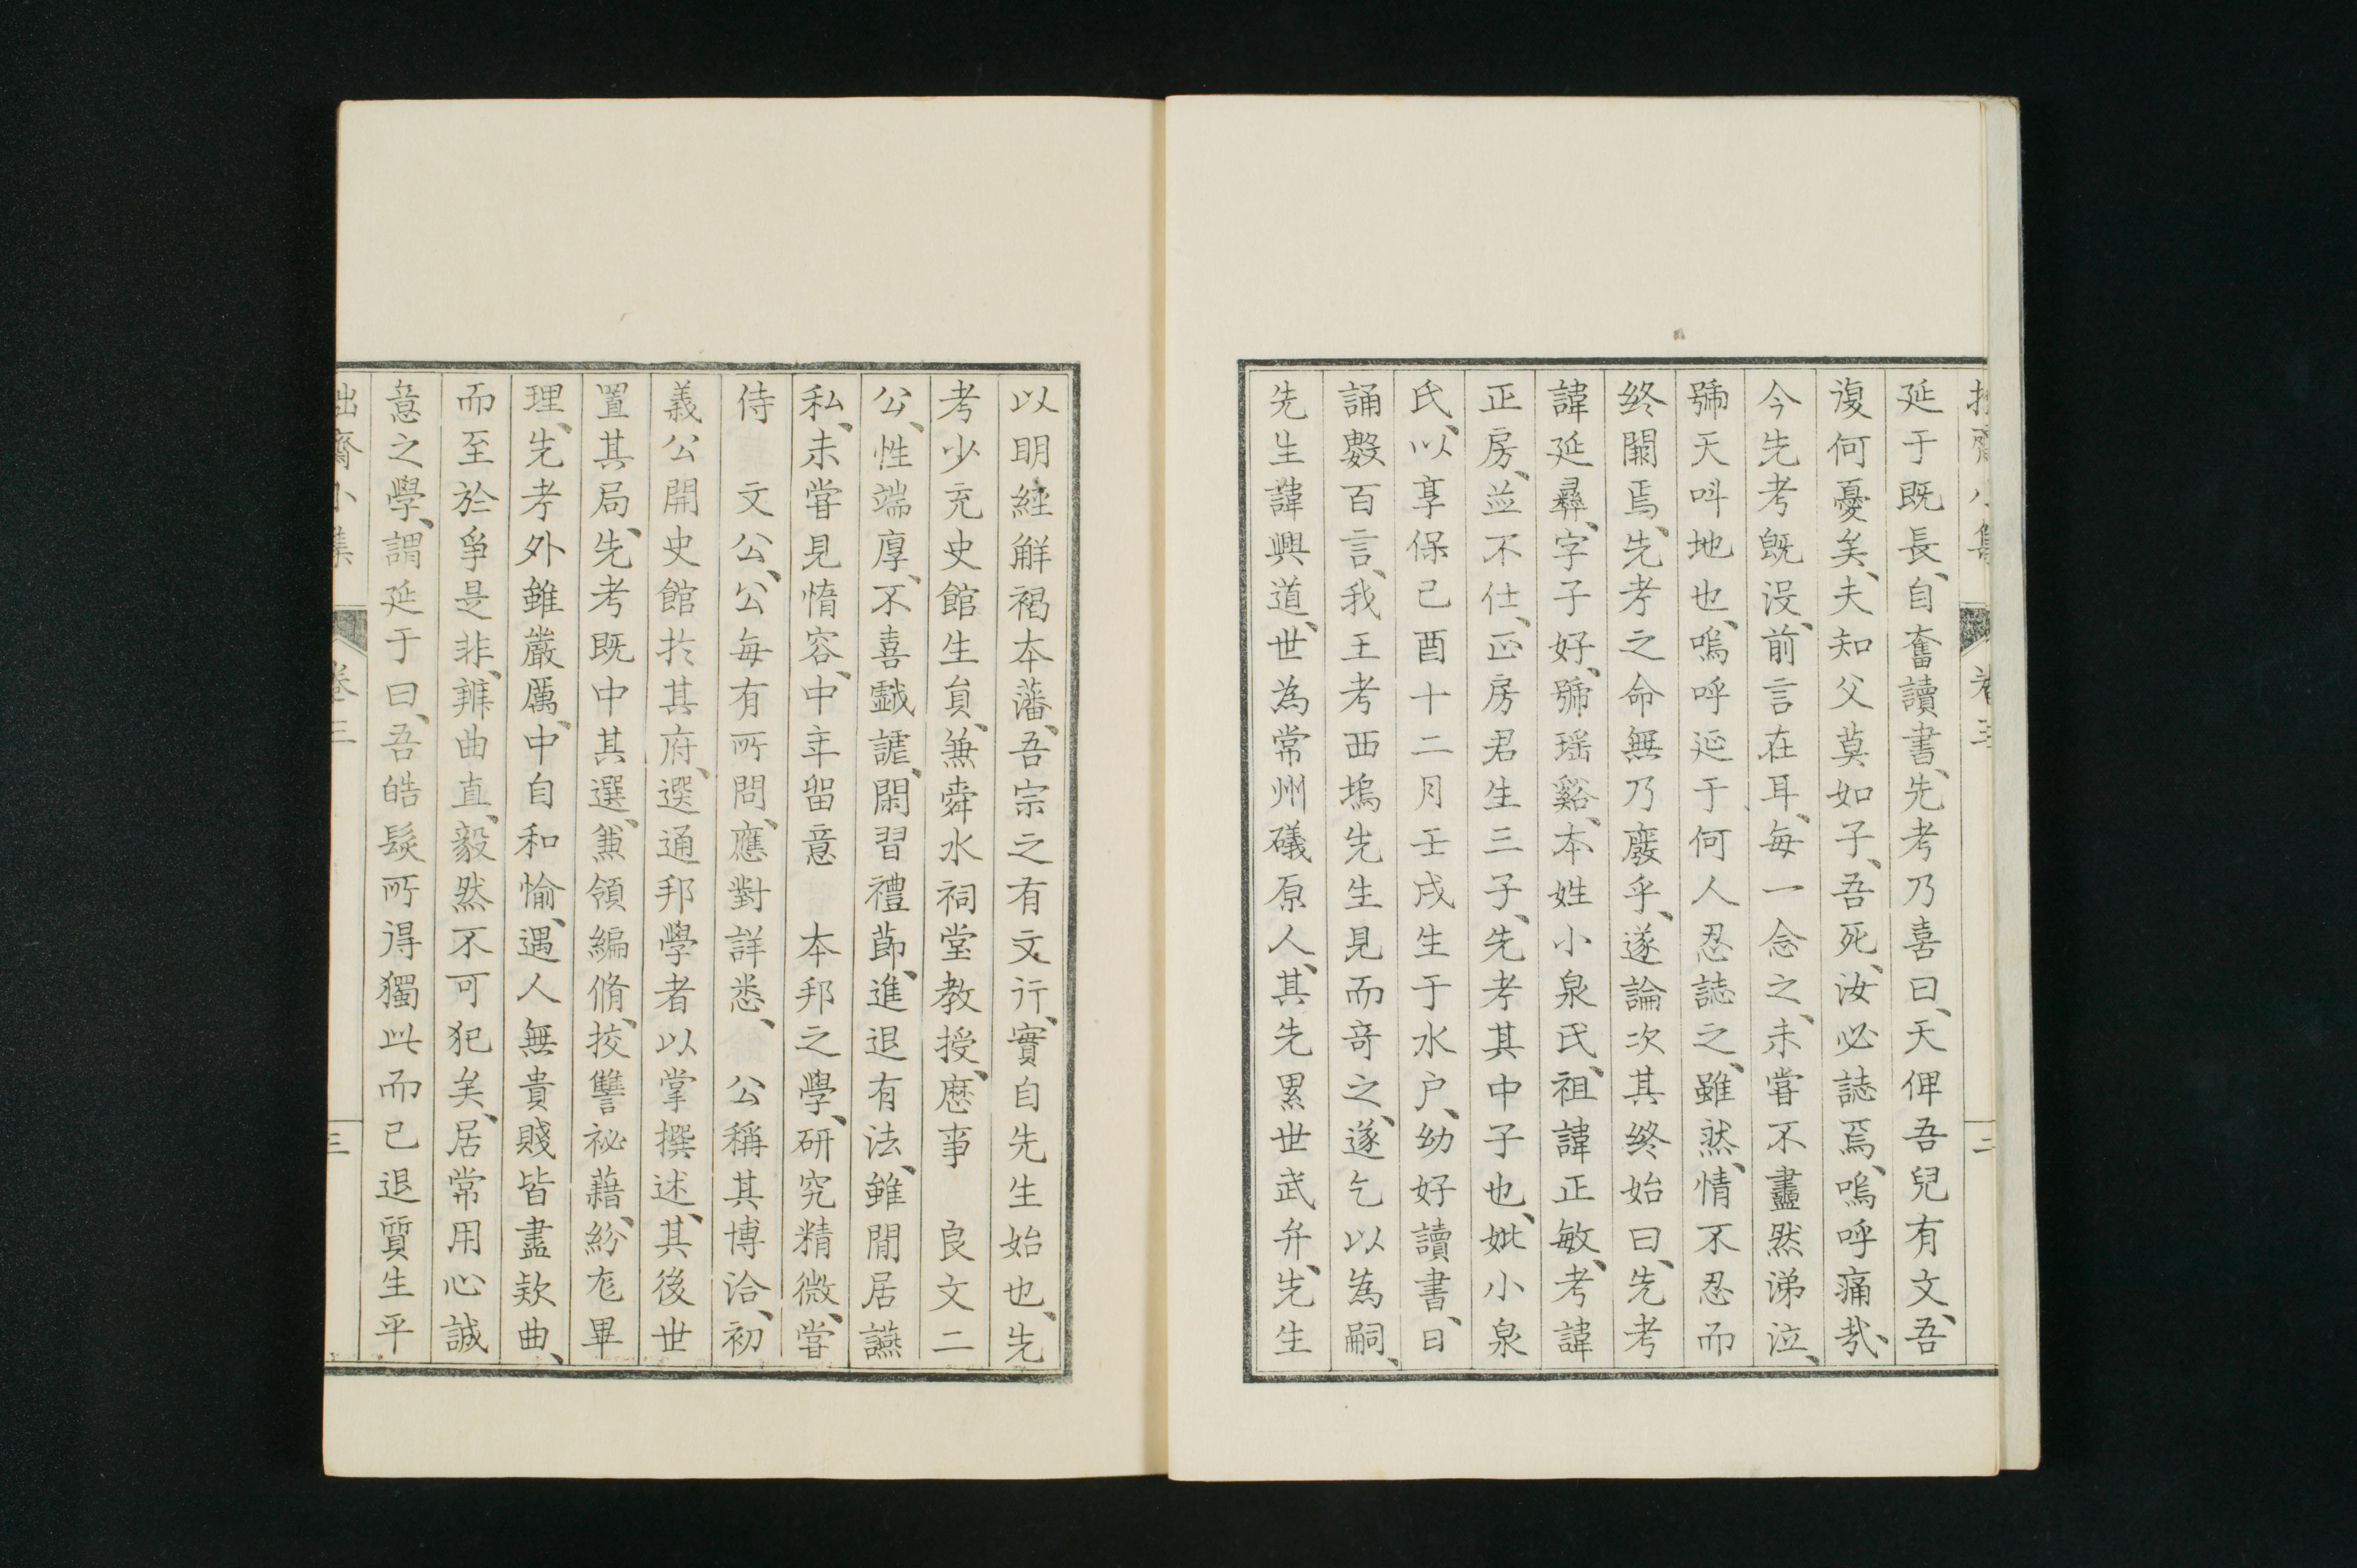 延于既長、自奮讀書、先考乃喜曰、天俾吾兒有文、吾
復何憂矣、夫知父莫如子、吾死、汝必誌焉、嗚呼痛哉、
今先考既沒、前言在耳、每一念之、未嘗不衋然涕泣、
號天叫地也、嗚呼延于何人忍誌之、雖然、情不忍而
終闕焉、先考之命無乃廢乎、遂論次其終始曰、先考
諱延彝、字子好、號瑶谿、本姓小泉氏、祖諱正敏、考諱
正房、並不仕、正房君生三子、先考其中子也、妣小泉
氏、以享保己酉十二月壬戌生于水户、幼好讀書、日
誦數百言、我王考西塢先生見而奇之、遂乞以為嗣、
先生諱興道、世為常州礒原人、其先累世武弁、先生
以明經觧褐本藩、吾宗之有文行、實自先生始也、先
考少充史館生員、兼舜水祠堂教授、歴事　良文二
公、性端厚、不喜戯謔、閑習禮節、進退有法、雖閒居讌
私、未嘗見惰容、中年留意　本邦之學、研究精微、嘗
侍　文公、公每有所問、應對詳悉、　公稱其博洽、初
義公開史館扵其府、選通邦學者以掌撰述、其後世
置其局、先考既中其選、兼領編脩、挍讐祕藉、紛庬畢
理、先考外雖嚴厲、中自和愉、遇人無貴賤皆盡欵曲、
而至於爭是非、辨曲直、毅然不可犯矣、居常用心誠
意之學、謂延于曰、吾皓髮所得獨此而已退質生平
拙齋小集　卷三　三